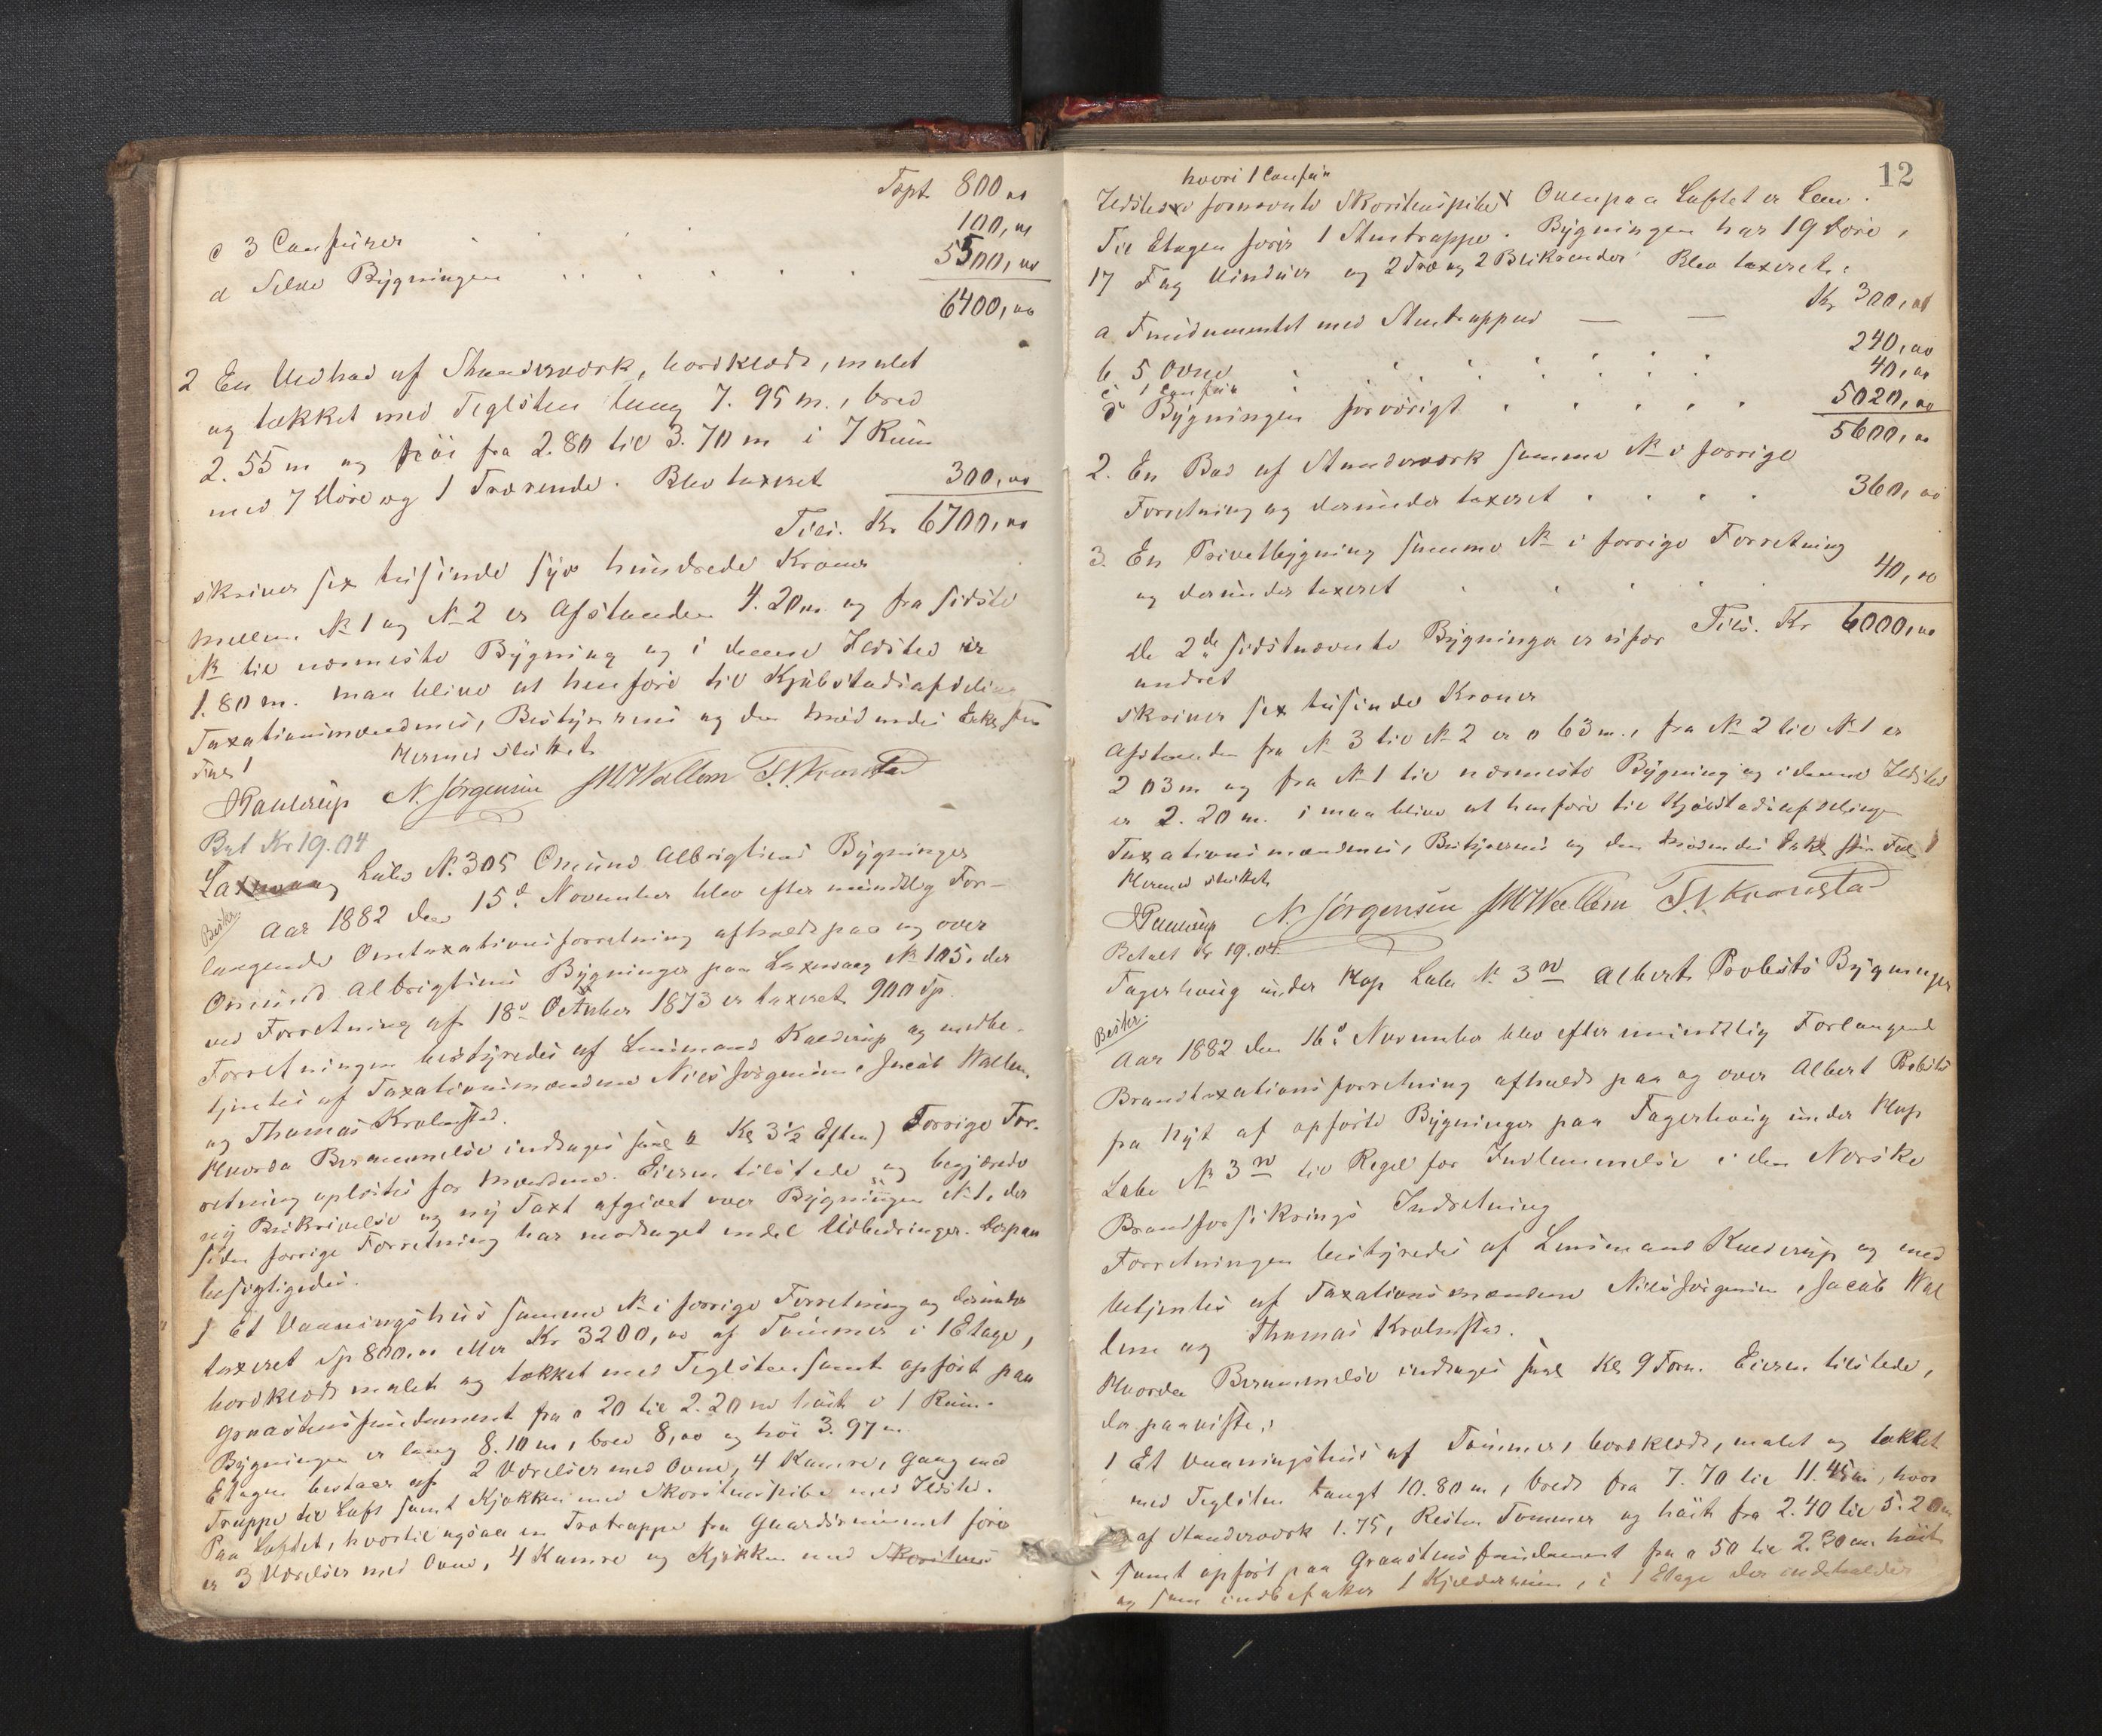 Tspt. 800 00
c 3 Comfurer 100,00
d Selve Bygningen 5500,00
6400,00
2 En Vedbod af Standerværk, bordklædt, malet
og tækket med Teglsten lang 7.95 m., bred
2.55 m og høi fra 2.80 til 3.70 m i 7 Rum
med 7 Døre og 1 Trærende. Blev taxeret 300,00
Tils. Kr 6700,00
skriver sex tusinde syv hundrede Kroner
Mellem № 1 og № 2 er Afstanden 4.20 m og fra sidste
№ til nærmeste Bygning og i denne Ildsted er
1.80 m. maa blive at henføre til Kjøbstadsafdeling
Taxationsmændenes, Bestyrerens og den
Hermed sluttet
N. Jørgensen JM Wallem T. N. Kronstad
Bet Kr 19.04
Laxevaag Løbe № 305 Omund Albrigtsens Bygninger
Aar 1882 den 15d November blev efter mundtlig For-
langende Omtaxationsforretning afholdt paa og over
Omund Albrigtsens Bygninger paa Laxevaag № 105, der
ved Forretning af 18d October 1873 er taxeret 900 Sp.
Forretningen bestyredes af Lensmand og medbe-
tjentes af Taxationsmændene Niels Jørgensen, Jacob Wallem
og Thomas Kronstad.
Hvorda Berammelse indtages Kl 3½ Efterm) Forrige For-
retning oplæstes for Mændene. Eieren tilstede og begjærede
ny Beskrivelse og ny Taxt afgivet over Bygningen № 1, der
siden forrige Forretning har modtaget endel Udbedringer. Derpaa
besigtigedes.
1 Et Vaaningshus samme № i forrige Forretning og derunder
taxeret Sp 800,00 eller Kr 3200,00 af Tømmer i 1 Etage,
bordklædt malet og tækket med Teglsten samt opført paa
Graastensfundament fra 0 20 til 2.20 m høit i 1 Rum.
Bygningen er lang 8.10 m, bred 8,00 og høi 3.97 m
Etagen bestaar af 2 Værelser med Ovne, 4 Kamre, Gang med
Trappe til Loft samt Kjøkken med Skorstenspibe med Ildsted.
Paa Loftet, hvortil ogsaa en Trætrappe fra Gaardsrummet fører
er 3 Værelser med Ovne, 4 Kamre og Kjøkken med Skorstens
12
hvori 1 Comfur
Ildsted i fornævnte Skorstenspibe Ovenpaa Loftet er Lem.
Til Etagen fører 1 Stentrappe. Bygningen har 19 Døre,
17 Fag Vinduer og 2 Træ og 2 Blikrender Blev taxeret:
a Fundamentet med Stentrappen Kr 300,00
b 5 Ovne 240,00
c 1 Comfur 40,00
d Bygningen forøvrigt 5020,00
5600,00
2. En Bod af Standerværk samme № i forrige
Forretning og derunder taxeret 360,00
3. En Privetbygning samme № i forrige Forretning
og derunder taxeret 40,00
Tils. Kr 6000,00
De 2de sidstnævnte Bygninger er ufor
andret
skriver sex tusinde Kroner
Afstanden fra № 3 til № 2 er 0 63 m., fra № 2 til № 1 er
2 03 m og fra № 1 til nærmeste Bygning og i denne Ildsted
er 2.20 m. maa blive at henføre til Kjøbstadsafdelingen
Taxationsmændenes, Bestyrerens og den
Hermed sluttet
N. Jørgensen JM Wallem T. N. Kronstad
Betalt Kr 19.04
Fagerhaug under Hop Løbe № 3 Albert Bygninger
Aar 1882 den 16d November blev efter mundtlig Forlangende
Brandtaxationsforretning afholdt paa og over Albert
fra Nyt af opførte Bygninger paa Fagerhaug under Hop
Løbe № 3 til Regel for Indlemmelse i den Norske
Brandforsikrings Indretning
Forretningen bestyredes af Lensmand og med
betjentes af Taxationsmændene Niels Jørgensen, Jacob Wal
lem og Thomas Kronstad.
Hvorda Berammelse indtages Kl 9 Form. Eieren tilstede,
der paaviste:
1 Et Vaaningshus af Tømmer, bordklædt, malet og tækket
med Teglsten langt 10.80 m, bredt fra 7.70 til 11.45 m, hvor
af Standerværk 1.75, Resten Tømmer og høit fra 2.40 til 5.20 m
samt opført paa Graastensfundament fra 0 50 til 2.30 m høit
og som indbefatter 1 Kjelderrum, i 1 Etage der indeholder